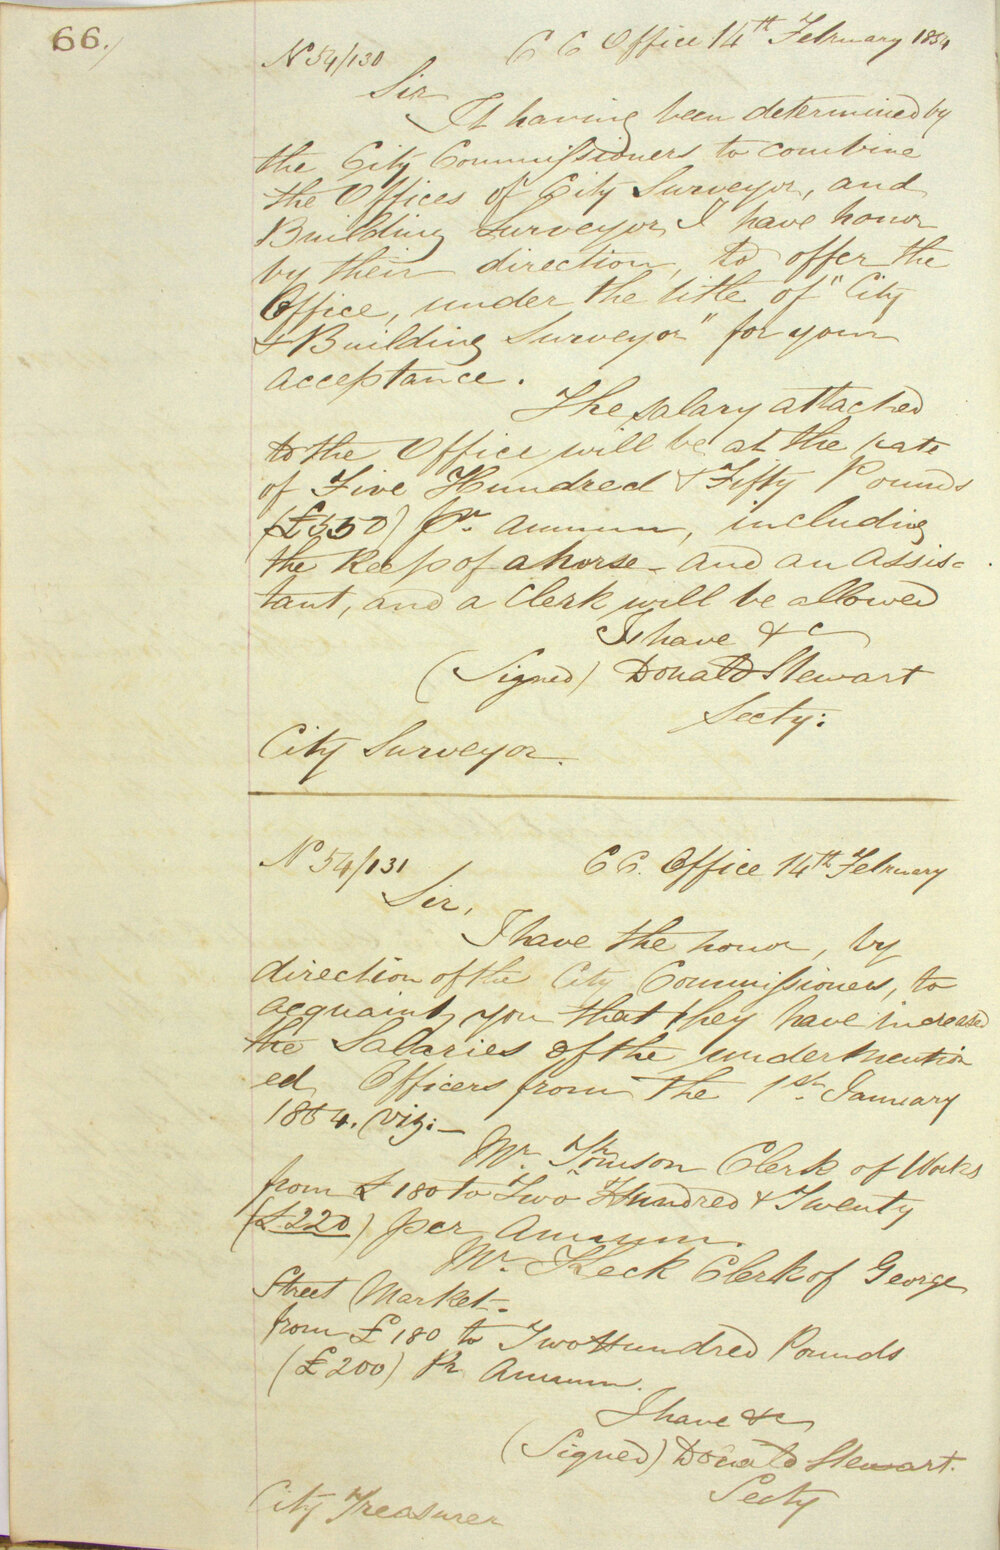 66.
No 54/130 C C Office 14th February 1854
Sir
It having been determined by
the City Commissioners to combine
the Offices of City Surveyor, and
Building Surveyor, I have honor
by their direction, to offer the
Office, under the title of "City
& Building Surveyor" for your
acceptance.
The salary attached
to the Office will be at the rate
of Five Hundred & Fifty Pounds
(£550) Pr Annum, including
the Keep of a horse - and an assis=
tant, and a Clerk will be allowed
I have &c
(Signed) Donald Stewart
Secty:
City Surveyor.
No 54/131 C C. Office 14th February
Sir,
I have the honor, by
direction of the City Commissioners, to
acquaint you that they have increased
the Salaries of the undermention
ed Officers from the 1st January
1854. Viz:-
Mr. Clerk of Works
from £180 to Two Hundred & Twenty
(£220) per Annum.
Mr. Keck Clerk of George
Street Market-
from £180 to Two Hundred Pounds
(£200) Pr Annum.
I have &c
(Signed) Donald Stewart.
Secty
City Treasurer